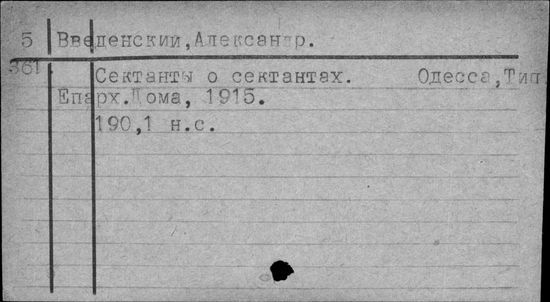 5 Введенский,Александр.
361 Сектанты о сектантах. Одесса,Тип
Епарх.Дома, 1915.
190,1 н.с.